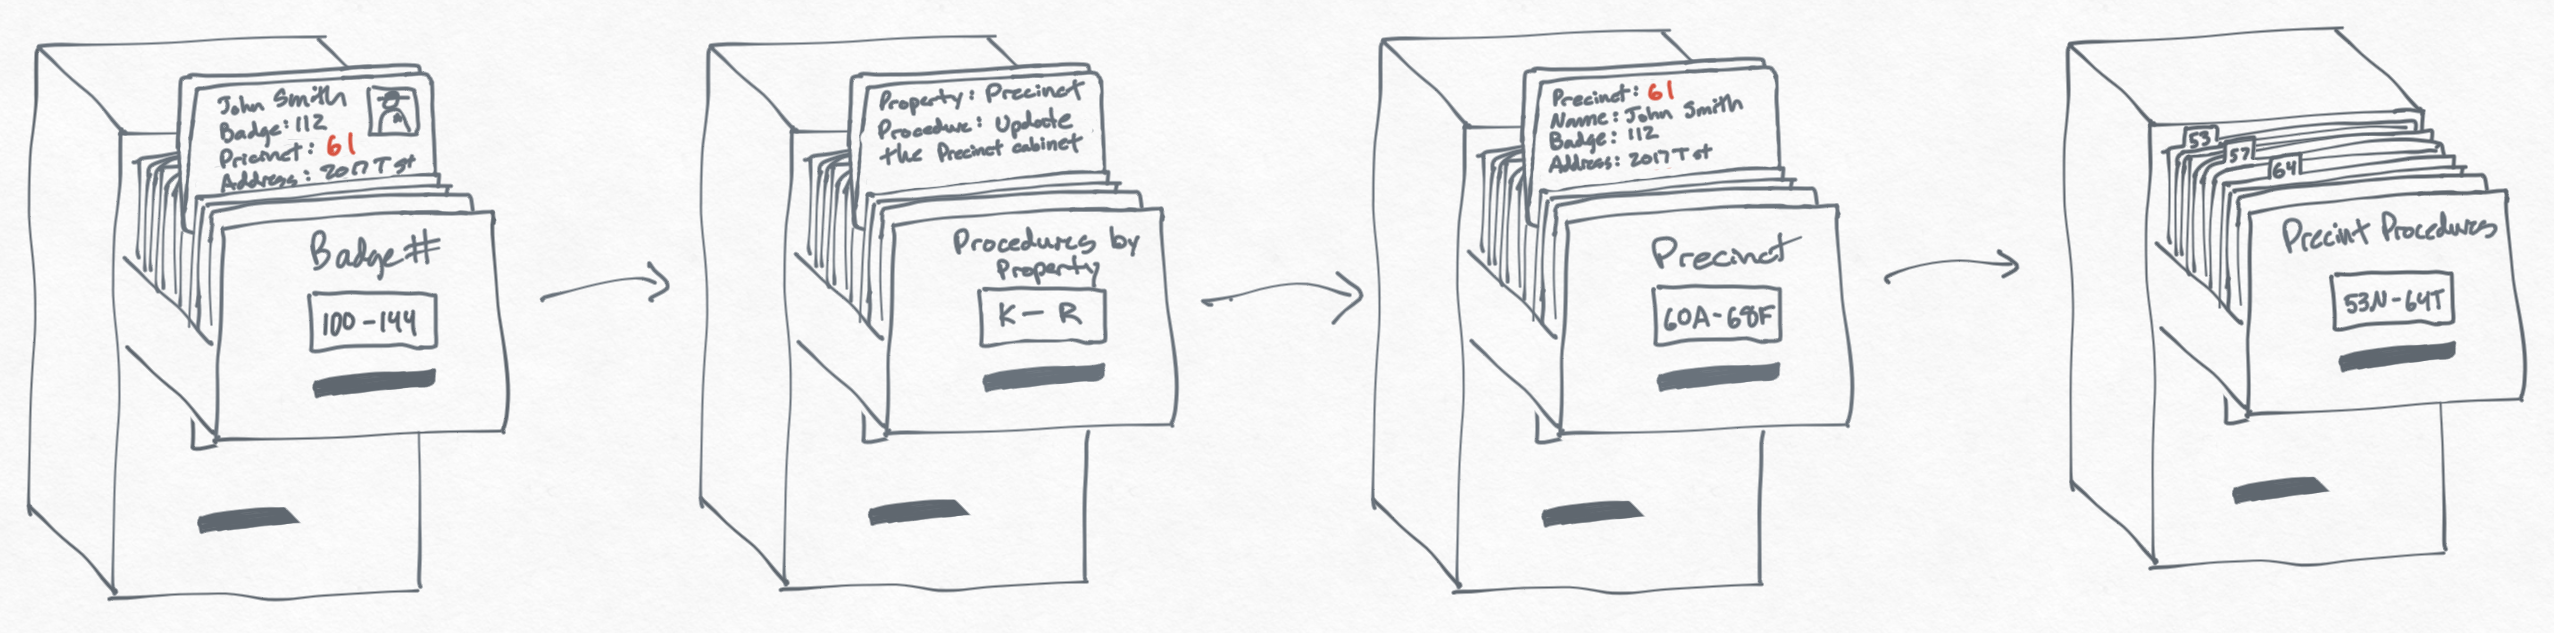 John Smith
Badge: 112
Pricinct: 61
Address: 2017 T st
Badge #
100-144
Property: Precinct
Procedure: Update
the Precinct cabinet
Procedures by
Property
K-R
Precinct: 61
Name: John Smith
Badge: 112
Address: 2017 T st
Precinct
60A-68F
53
57
64
Precint Procedures
53N-64T